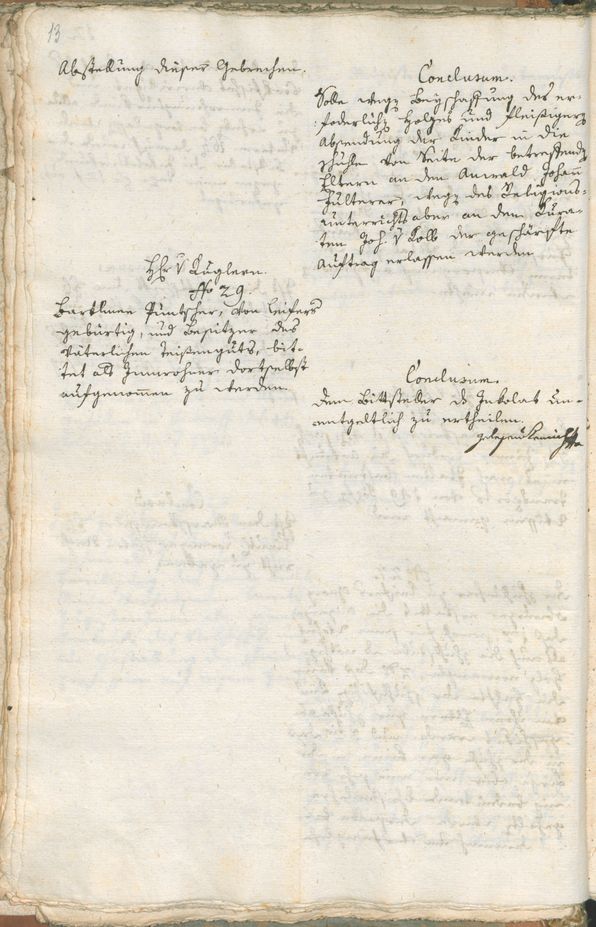 13
Abstellung dieser Gebrechen.
Conclusum.
Solle wegen Beyschaffung des er-
foderlichen Holzes und fleißigern
Absendung der Kinder in die
Schuhle von Seite der betreffenden
Eltern an den Anwald Johann
Fulterer, wegen des Religions-
unterrichts aber an den Kura-
ten Joh. v Kolb der geschärfte
Auftrag erlassen werden
Hhr v Kuglern.
No 29.
Bartlmee Puntscher, von Leifers
gebürtig, und Besitzer des
väterlichen Teißenguts, bit-
tet als Innwohner dortselbst
aufgenommen zu werden.
Conclusum.
Dem Bittsteller das Inkolat un-
entgeltlich zu ertheilen.